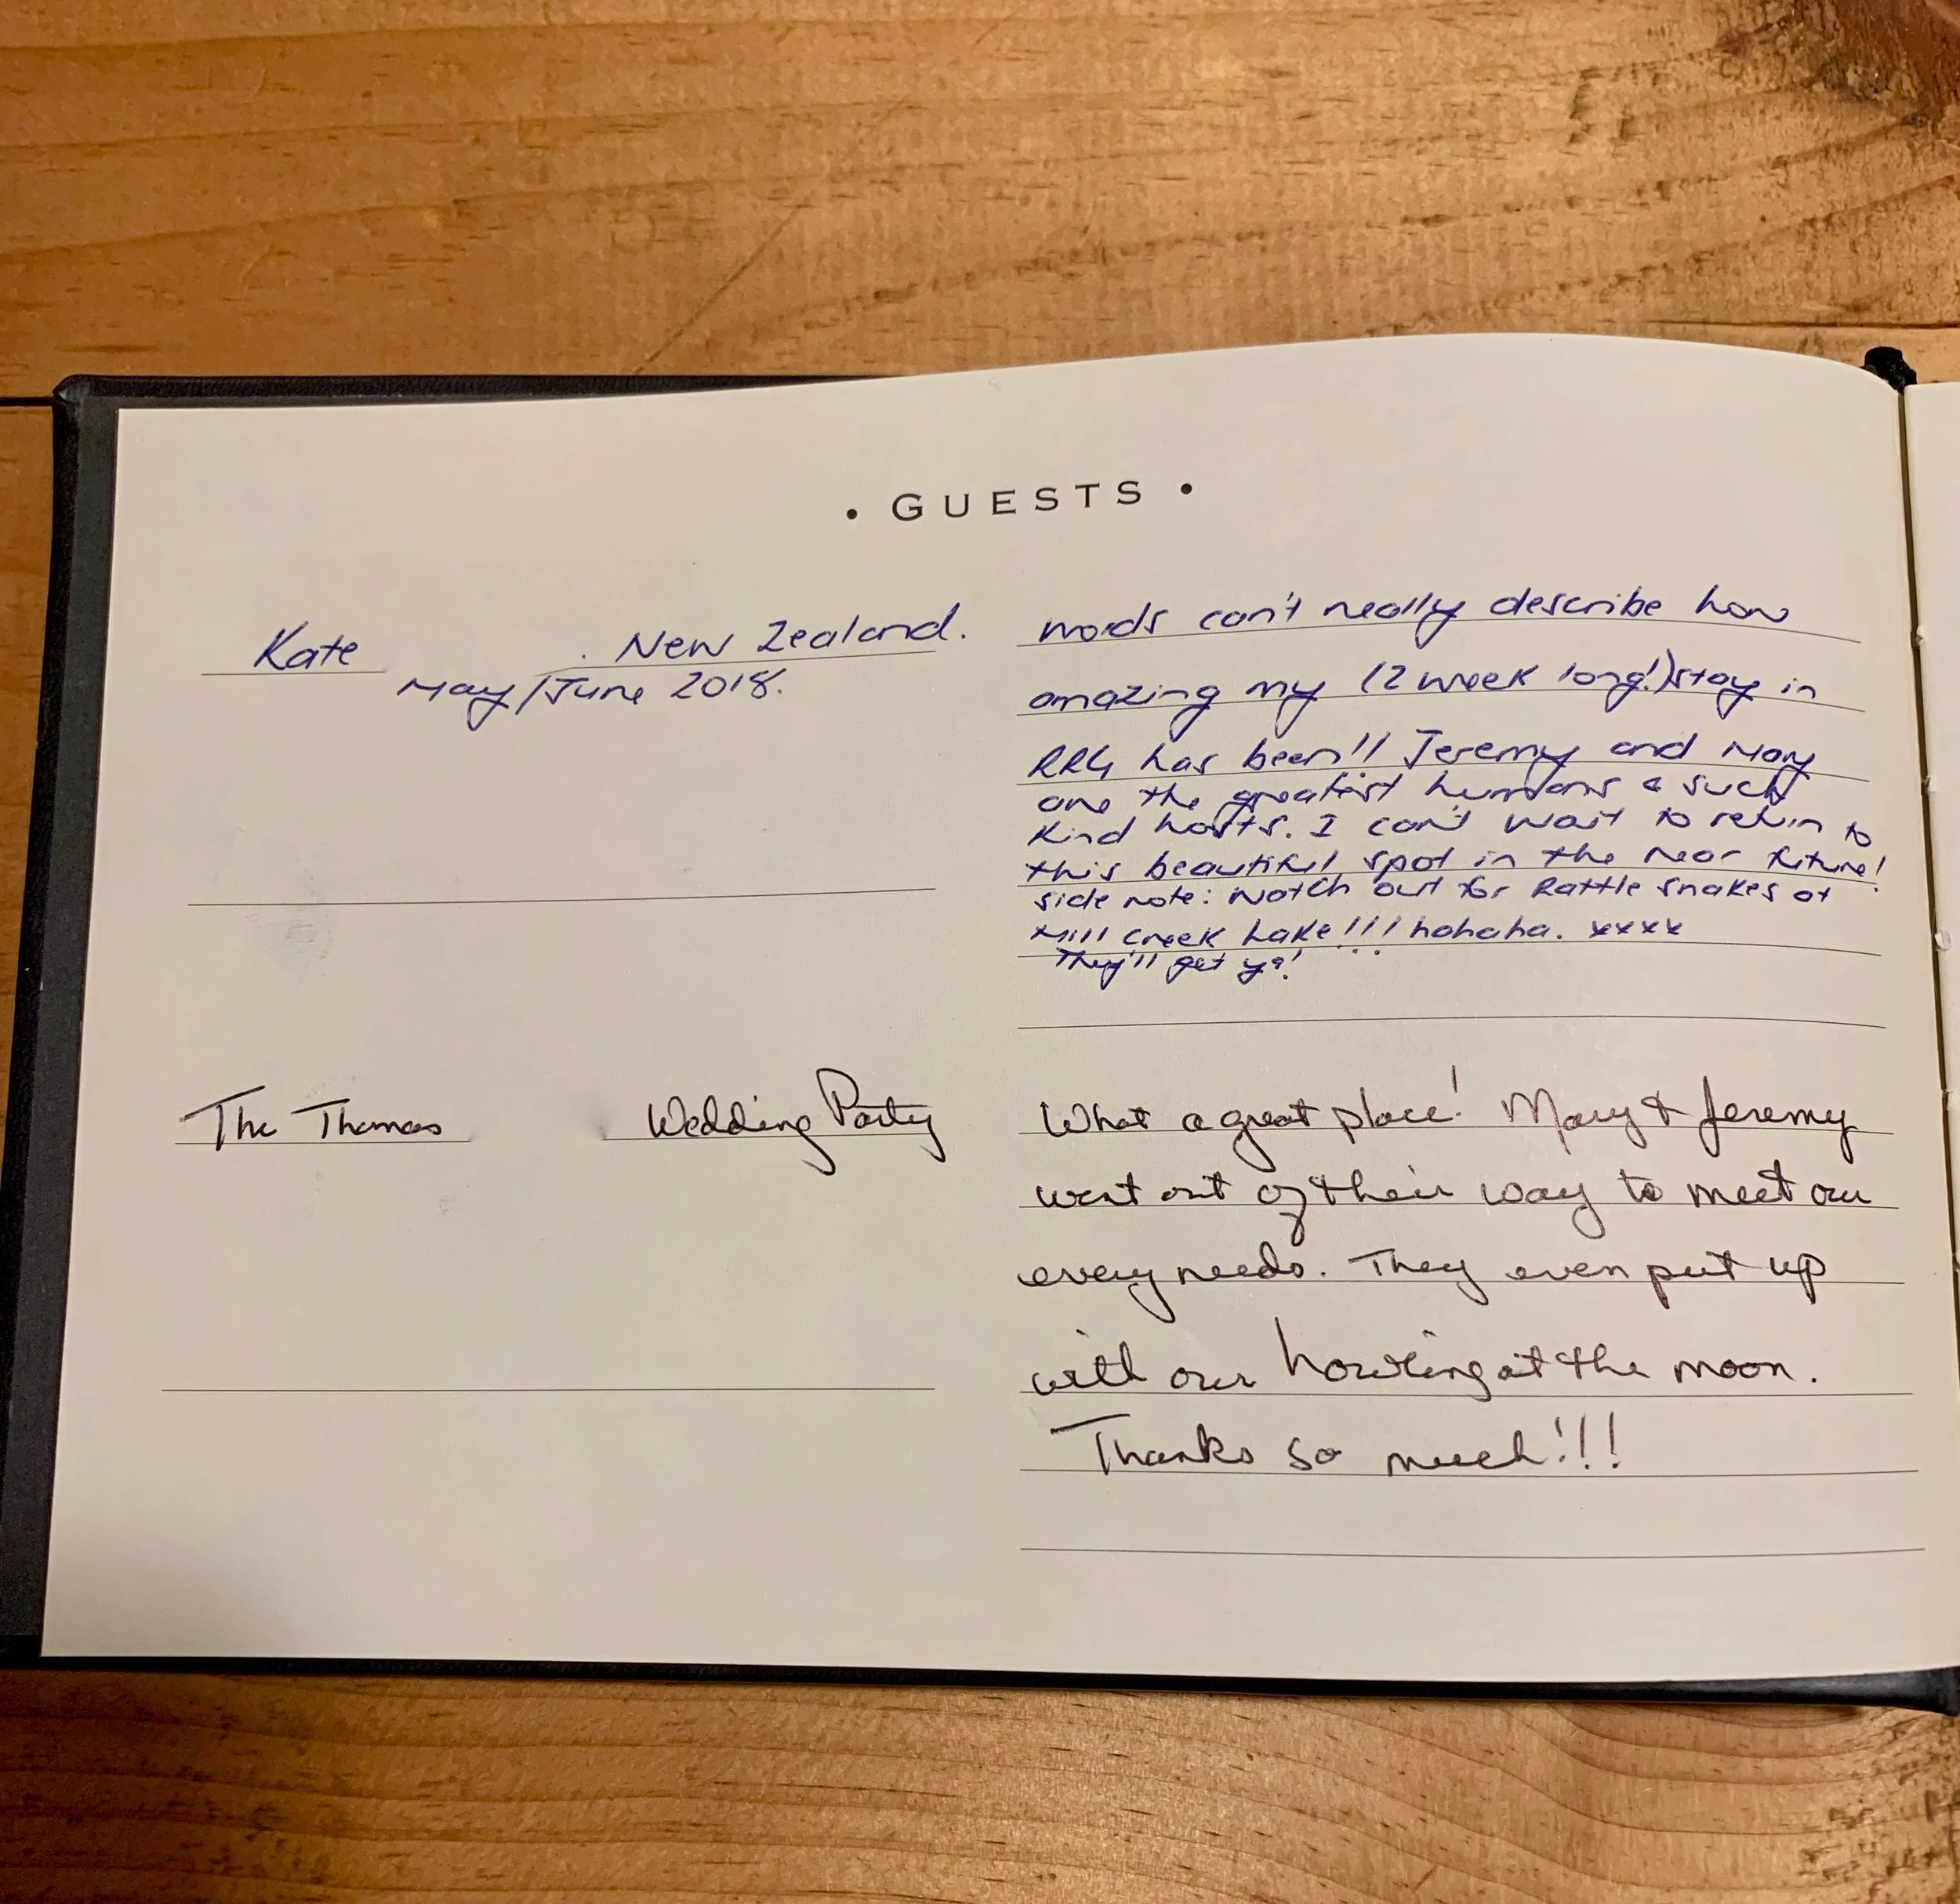 • GUESTS •
Kate
New Zealand.
May/June 2018.
words can't really describe how
amazing my (2 week long!) stay in
RRG has been!! Jeremy and May
are the greatest humans & such
kind hosts. I can't wait to return to
this beautiful spot in the near future!
side note: Watch out for Rattle snakes at
Mill Creek Lake!!! hahaha. xxxx
They'll get ya!
The Thomas
Wedding Party
What a great place! Mary & Jeremy
went out of their way to meet our
every needs. They even put up
with our howling at the moon.
Thanks so much!!!